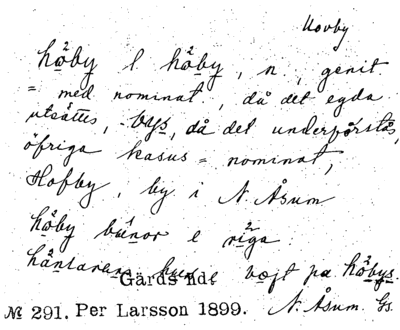 Hovby
høby l håby, n., genit
= med nominat., då det egda
utsättes, -bys, då det underförstås,
öfriga kasus = nominat,
Hofby, by i N. Åsum
høby bunor e riga
vøjt pa høbys.
Gärds hd.
№ 291. Per Larsson 1899. N. Åsum. Gs.